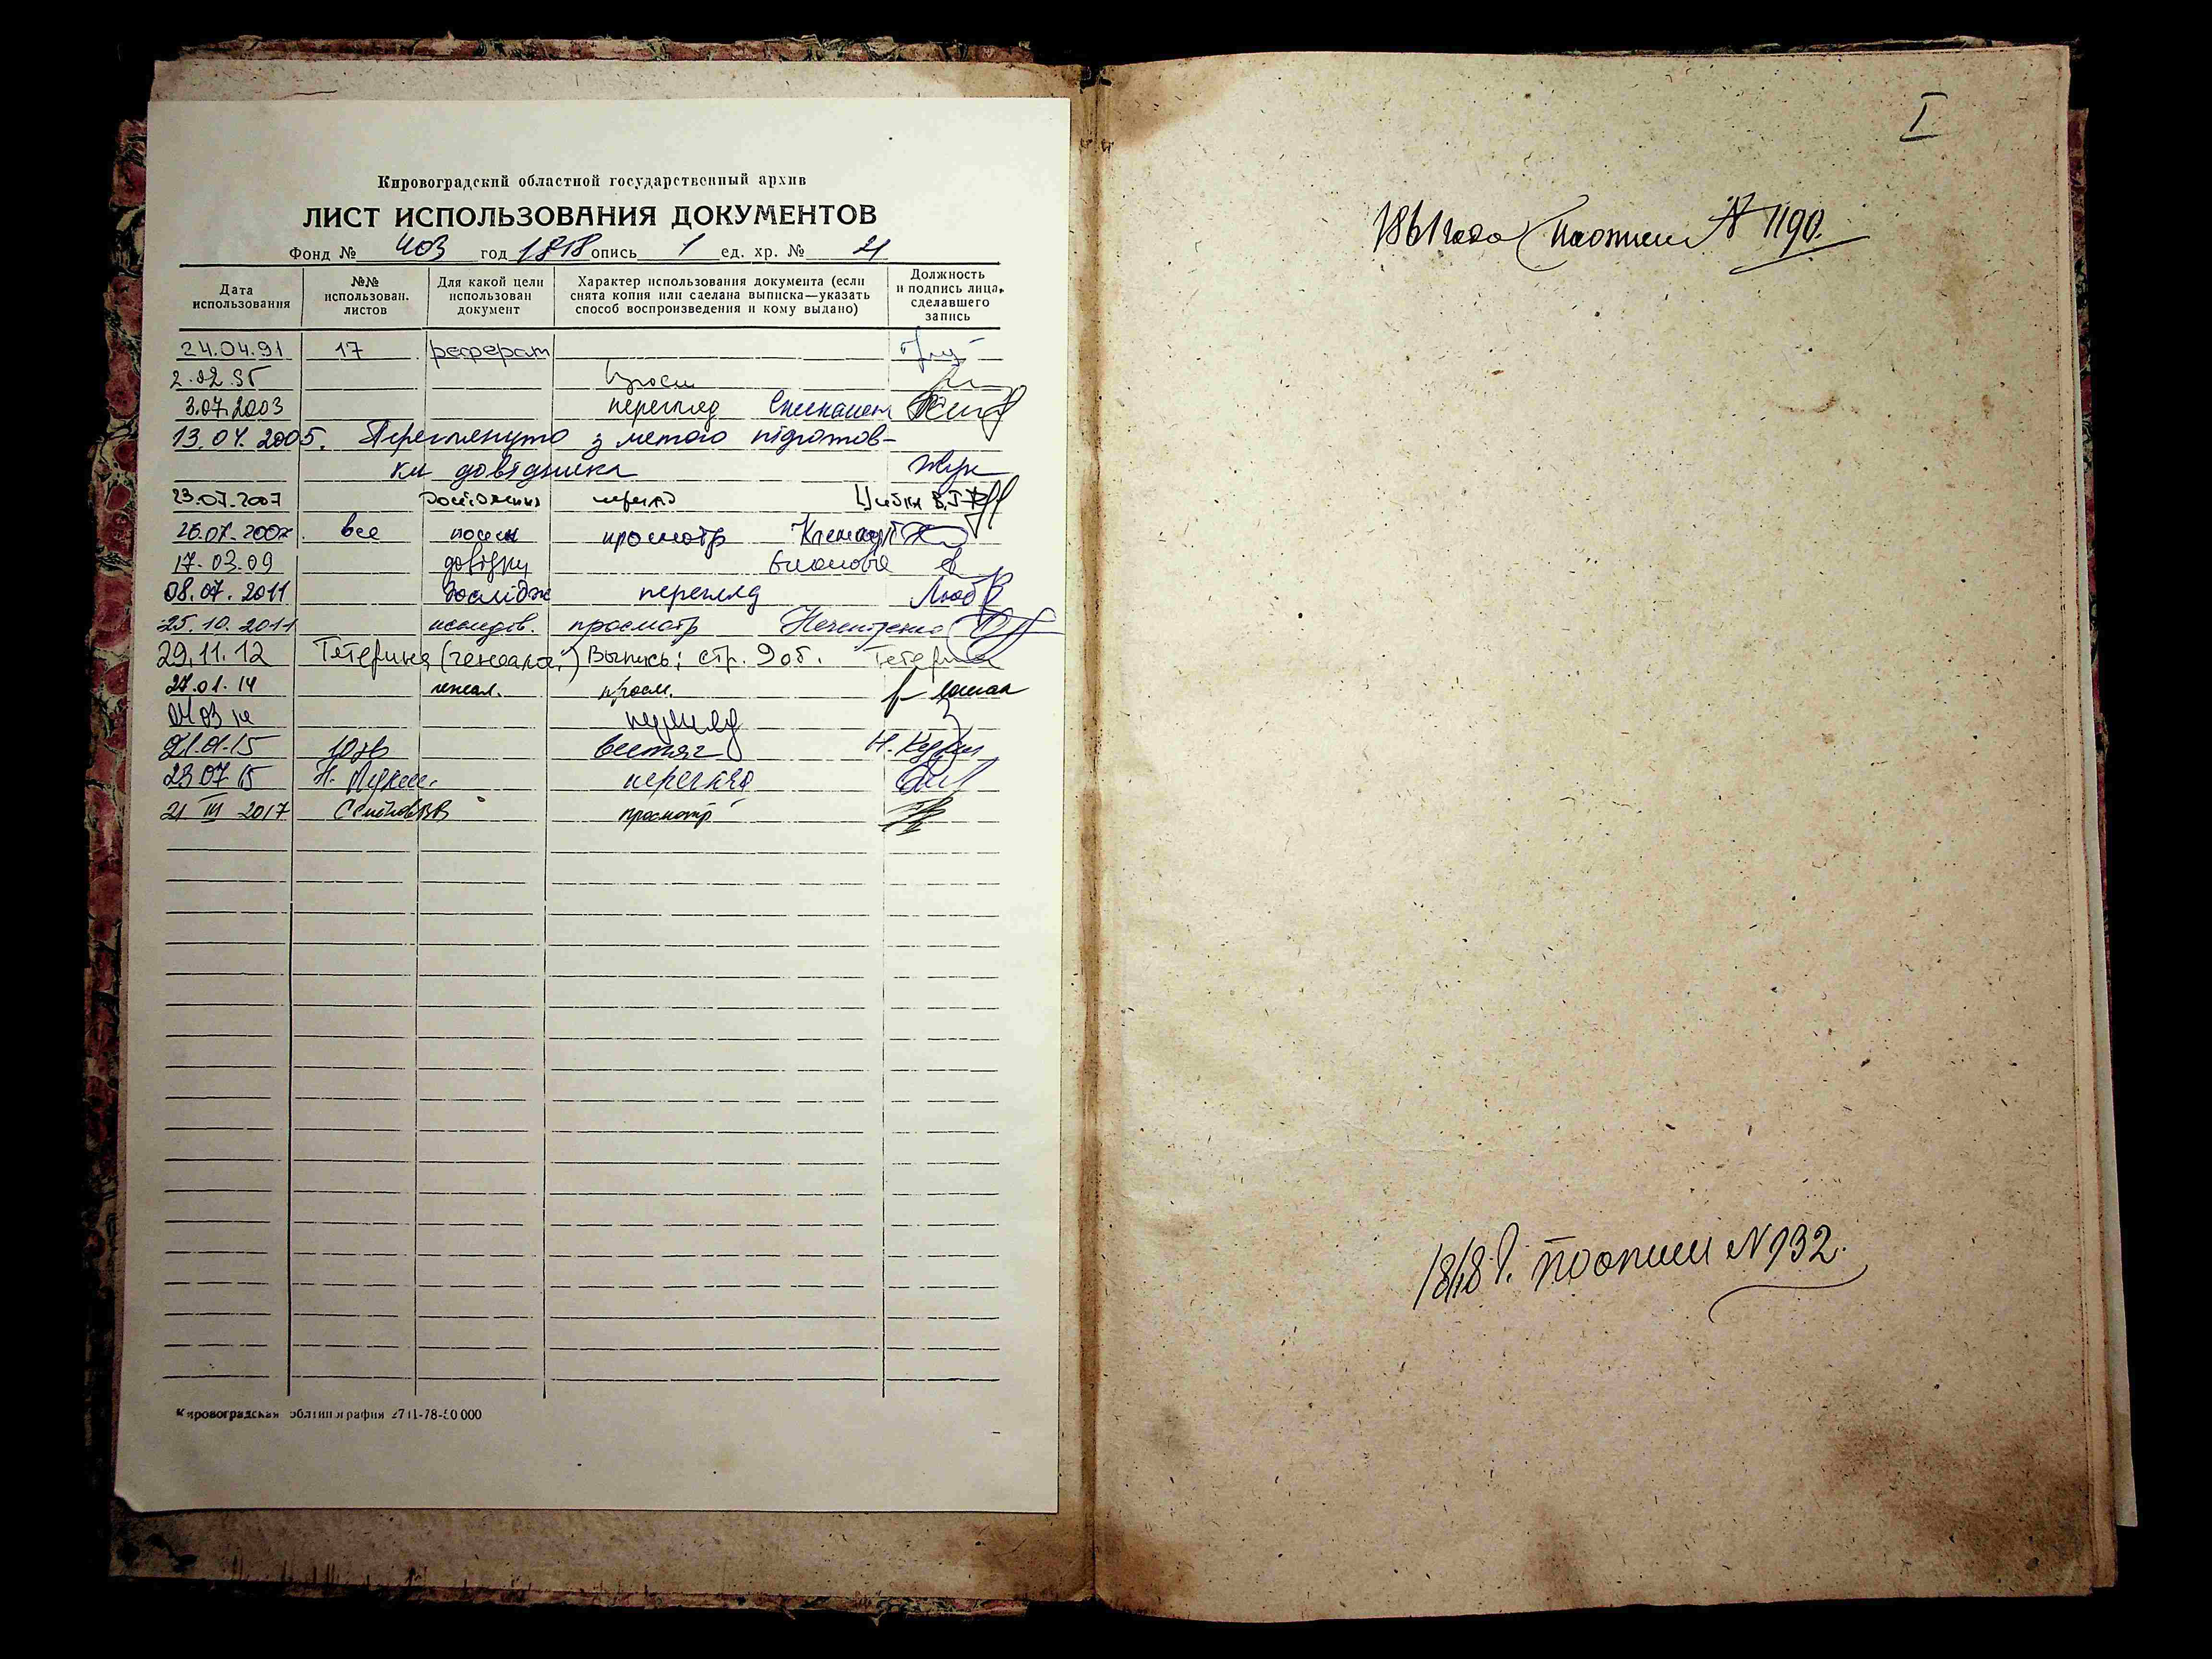 Кировоградский областной государственный архив
ЛИСТ ИСПОЛЬЗОВАНИЯ ДОКУМЕНТОВ
Фонд № 403 год 1818 опись 1 ед. хр. № 21
Дата использования
№№ использован. листов
Для какой цели использован документ
Характер использования документа (если снята копия или сделана выписка—указать способ воспроизведения и кому выдано)
Должность и подпись лица, сделавшего запись
24.04.91 17 реферат
2.02.95 просм
3.07.2003 перегляд
13.04.2005. Переглянуто з метою підготов-
ки довідника Жук
23.07.2007 перегляд
26.07.2007 все просмотр
17.03.09 довідку
08.07.2011 дослідж перегляд
25.10.2011 исследов. просмотр
29.11.12 Тетерина (генеалог.) Выпись: стр. 9 об. Тетерина
27.01.14 генеал. просм.
04 03 14 перегляд
21.01.15 витяг
23 07 15 перегляд
21 III 2017 просмотр
Кировоградская облтипография 2711-78-50 000
I
1861 года по описи № 1190.
1818 г. по описи № 132.